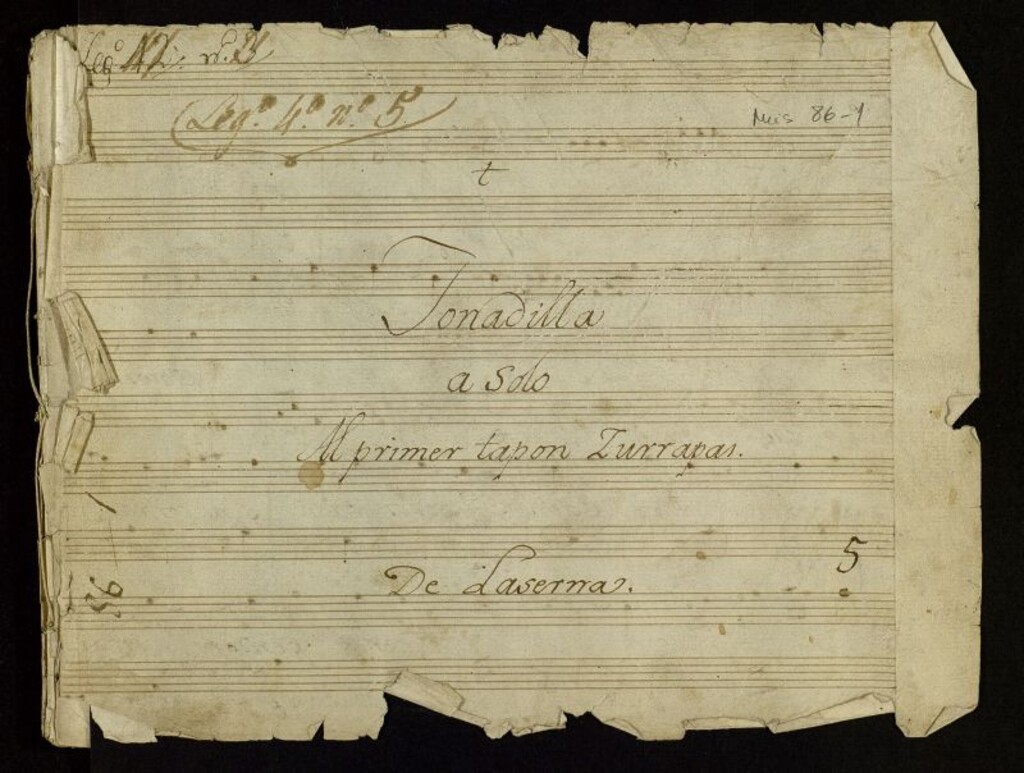 Leg.º
Leg.º 4.º n.º 5
Mus 86-9
t
Tonadilla
a Solo
Al primer tapon Zurrapas.
5
De Laserna.
56